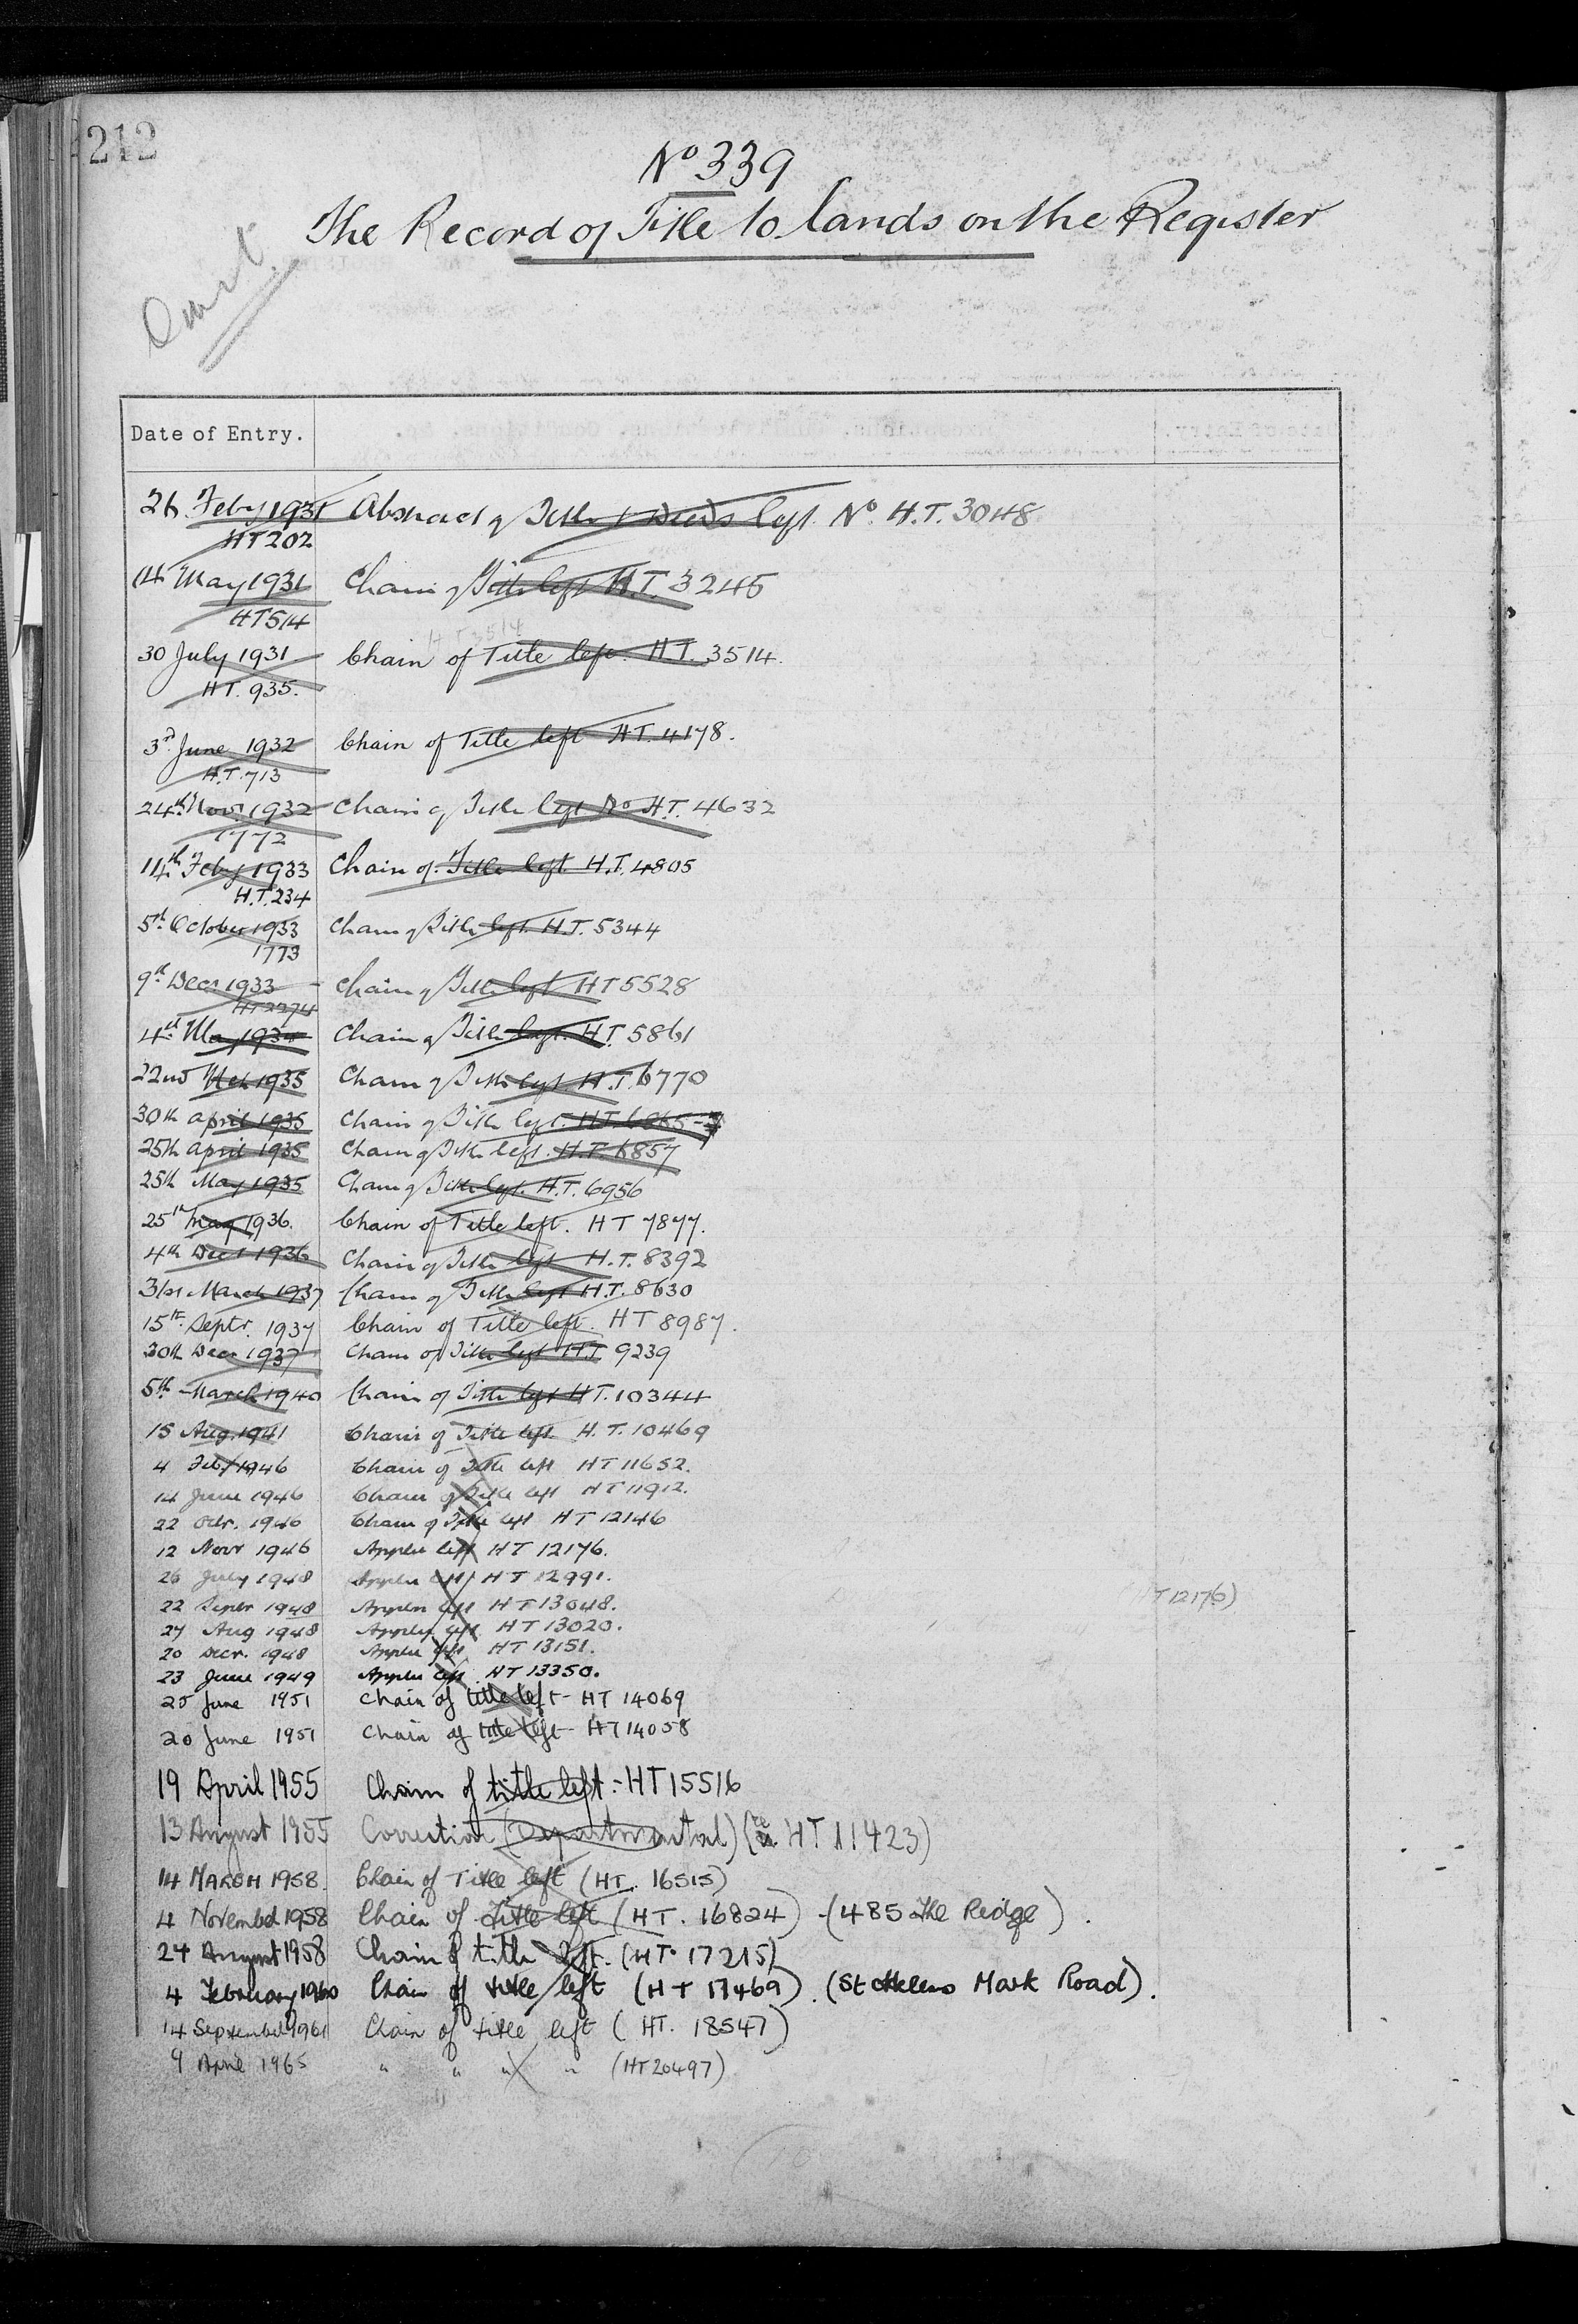 212
No 339
The Record of Title to lands on the Register
Omit
Date of Entry.
26 Feby 1931 Abstract of Title & Deeds left. No. H.T. 3048
HT 202
14 May 1931 Chain of Title left H.T. 3245
HT 514
HT 3514
30 July 1931 Chain of Title left. H.T. 3514.
HT. 935.
3rd June 1932 Chain of Title left HT. 4178.
H.T. 713
24th Novr. 1932 Chain of Title left No H.T. 4632
1772
14th Feby 1933 Chain of Title left H.T. 4805
H.T. 234
5th October 1933 Chain of Title left H.T. 5344
1773
9th Decr 1933 Chain of Title left HT 5528
HT 2274
4th May 1934 Chain of Title left. H.T. 5861
22nd Mch 1935 Chain of Title left. H.T. 6770
30th April 1935 Chain of Title left. H.T. 6865-7
25th April 1935 Chain of Title left. H.T. 6857
25th May 1935 Chain of Title left. H.T. 6956
25th May 1936. Chain of Title left. HT 7877.
4th Decr 1936 Chain of Title left H.T. 8392
31st March 1937 Chain of Title left H.T. 8630
15th Septr. 1937 Chain of Title left. HT 8987.
30th Decr 1937 Chain of Title left H.T. 9239
5th March 1940 Chain of Title left HT. 10344
15 Aug. 1941 Chain of Title left H.T. 10469
4 Feby 1946 Chain of Title left HT 11652.
14 June 1946 Chain of Title left HT 11912.
22 Octr. 1946 Chain of Title left HT 12146
12 Novr 1946 Appln left HT 12176.
26 July 1948 Appln left HT 12991.
22 Septr 1948 Appln left HT 13048. HT 12176)
27 Aug 1948 Appln left HT 13020.
20 Decr. 1948 Appln left HT 13151.
23 June 1949 Appln left HT 13350.
25 June 1951 Chain of title left - HT 14069
20 June 1951 Chain of title left - HT 14058
19 April 1955 Chain of title left :- HT 15516
13 August 1955 Correction (Departmental) (re HT 11423)
14 MARCH 1958. Chain of Title left (HT. 16515)
4 November 1958 Chain of Title left (HT. 16824) - (485 The Ridge).
24 August 1958 Chain of title left. (HT 17215)
4 February 1960 Chain of title left (HT 17469). (St Helens Mark Road).
14 September 1961 Chain of title left (HT. 18547)
9 April 1965 " " " " (HT 20497)